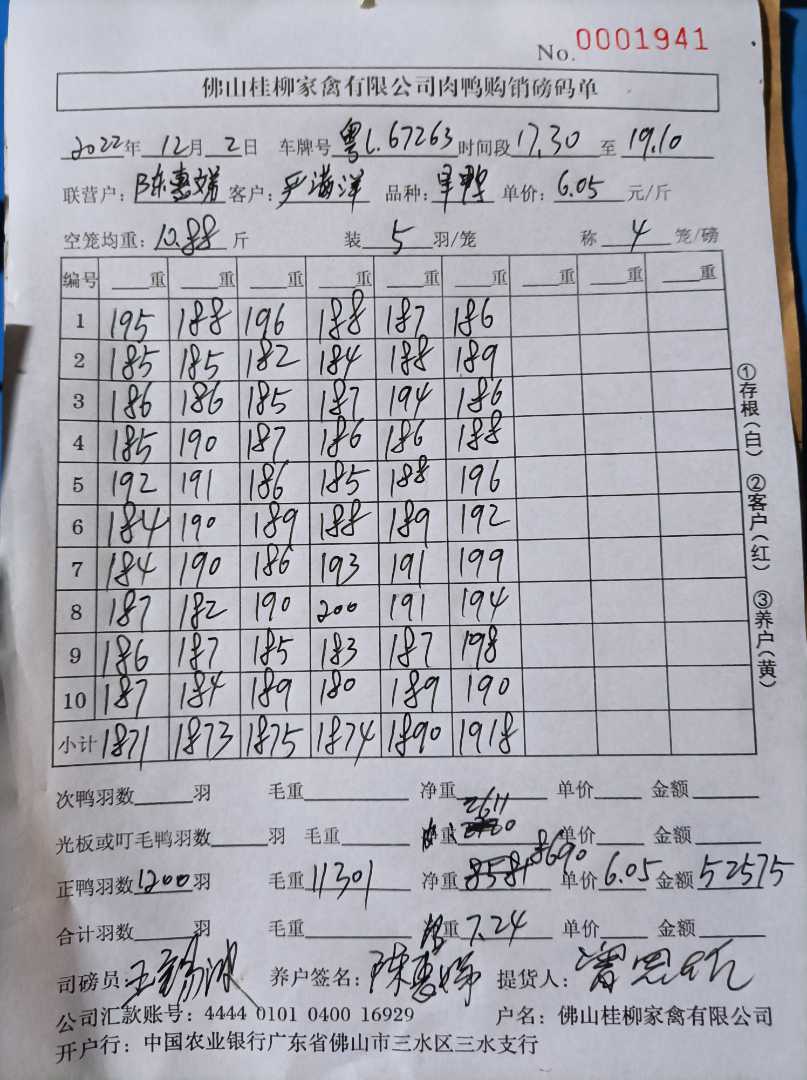 No. 0001941
佛山桂柳家禽有限公司肉鸭购销磅码单
2022年 12月 2日 车牌号 粤L.67263 时间段 17.30 至 19.10
联营户：陈惠娣 客户：严海洋 品种：旱鸭 单价：6.05 元/斤
空笼均重：10.88 斤 装 5 羽/笼 称 4 笼/磅
编号 重 重 重 重 重 重 重 重 重
1 195 188 196 188 187 186
2 185 185 182 184 188 189
3 186 186 185 187 194 186
4 185 190 187 186 186 188
5 192 191 186 185 188 196
6 184 190 189 188 189 192
7 184 190 186 193 191 199
8 187 182 190 200 191 194
9 186 187 185 183 187 198
10 187 184 189 180 189 190
小计 1871 1873 1875 1874 1890 1918
次鸭羽数 羽 毛重 净重 单价 金额
2611
光板或叮毛鸭羽数 羽 毛重 重 单价 金额
正鸭羽数1200羽 毛重 11301 净重 8581 8690 单价 6.05 金额 52575
合计羽数 羽 毛重 重 7.24 单价 金额
司磅员： 养户签名：陈惠娣 提货人：
公司汇款账号：4444 0101 0400 16929 户名：佛山桂柳家禽有限公司
开户行：中国农业银行广东省佛山市三水区三水支行
①存根(白) ②客户(红) ③养户(黄)